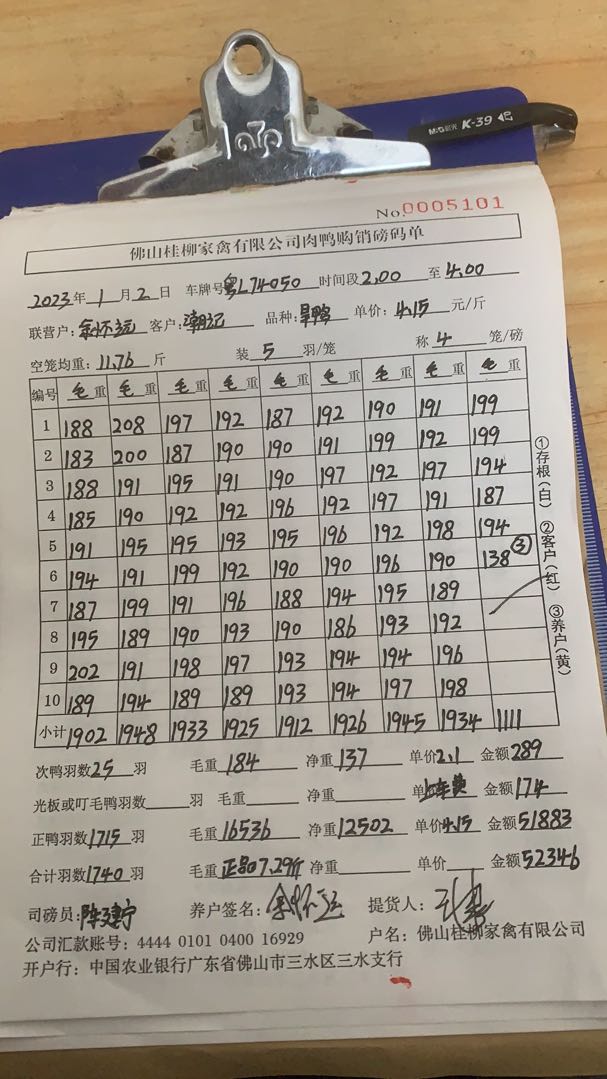 M&G晨光 K-39
No.0005101
佛山桂柳家禽有限公司肉鸭购销磅码单
2023年1月2日 车牌号粤L74050 时间段2.00至4.00
联营户:余怀远 客户:潮记 品种:旱鸭 单价:4.15元/斤
空笼均重:11.76斤 装5羽/笼 称4笼/磅
编号 毛重 毛重 毛重 毛重 毛重 毛重 毛重 毛重 毛重
1 188 208 197 192 187 192 190 191 199
2 183 200 187 190 190 191 199 192 199
3 188 191 195 191 190 197 192 197 194
4 185 190 192 192 196 192 197 191 187
5 191 195 195 193 195 196 192 198 194
6 194 191 199 192 190 190 196 190 138③
7 187 199 191 196 188 194 195 189
8 195 189 190 193 190 186 193 192
9 202 191 198 197 193 194 194 196
10 189 194 189 189 193 194 197 198
小计 1902 1948 1933 1925 1912 1926 1945 1934 1111
①存根(白) ②客户(红) ③养户(黄)
次鸭羽数25羽 毛重184 净重137 单价2.1 金额289
光板或叮毛鸭羽数 羽 毛重 净重 单 上车费 金额174
正鸭羽数1715羽 毛重16536 净重12502 单价4.15 金额51883
合计羽数1740羽 毛重正品07.29斤 净重 单价 金额52346
司磅员: 养户签名:余怀远 提货人:
公司汇款账号:4444 0101 0400 16929 户名:佛山桂柳家禽有限公司
开户行:中国农业银行广东省佛山市三水区三水支行